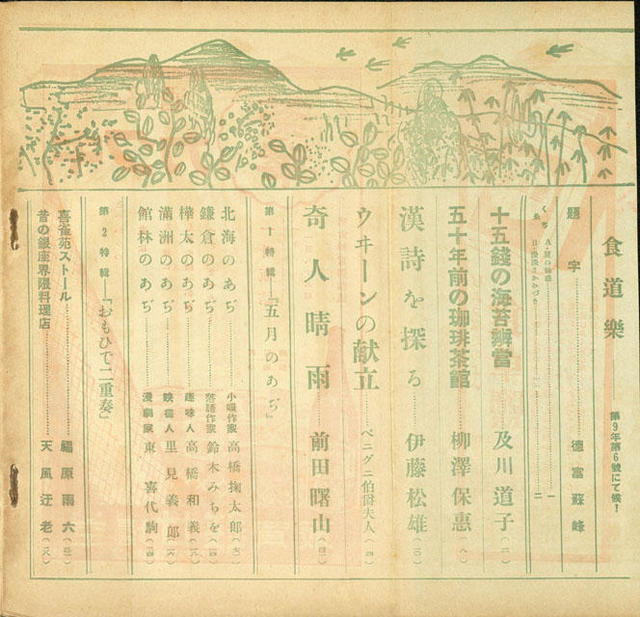 食道樂
第9年第6號にて候!
題字 德富蘇峰
くちゑ
十五錢の海苔辨當 及川道子
五十年前の珈琲茶館 柳澤保惠
漢詩を探る 伊藤松雄
ウヰーンの献立 ベニグニ伯爵夫人
奇人晴雨 前田曙山
第1特輯—「五月のあぢ」
北海のあぢ 小唄作家 高橋掬太郎
鎌倉のあぢ 落語作家 鈴木みちを
樺太のあぢ 趣味人 高橋和義
滿洲のあぢ 映畫人 里見義郎
館林のあぢ 漫劇家 東喜代駒
第2特輯—「おもひで二重奏」
喜雀苑ストール 福原雨六
昔の銀座界隈料理店 天風迂老